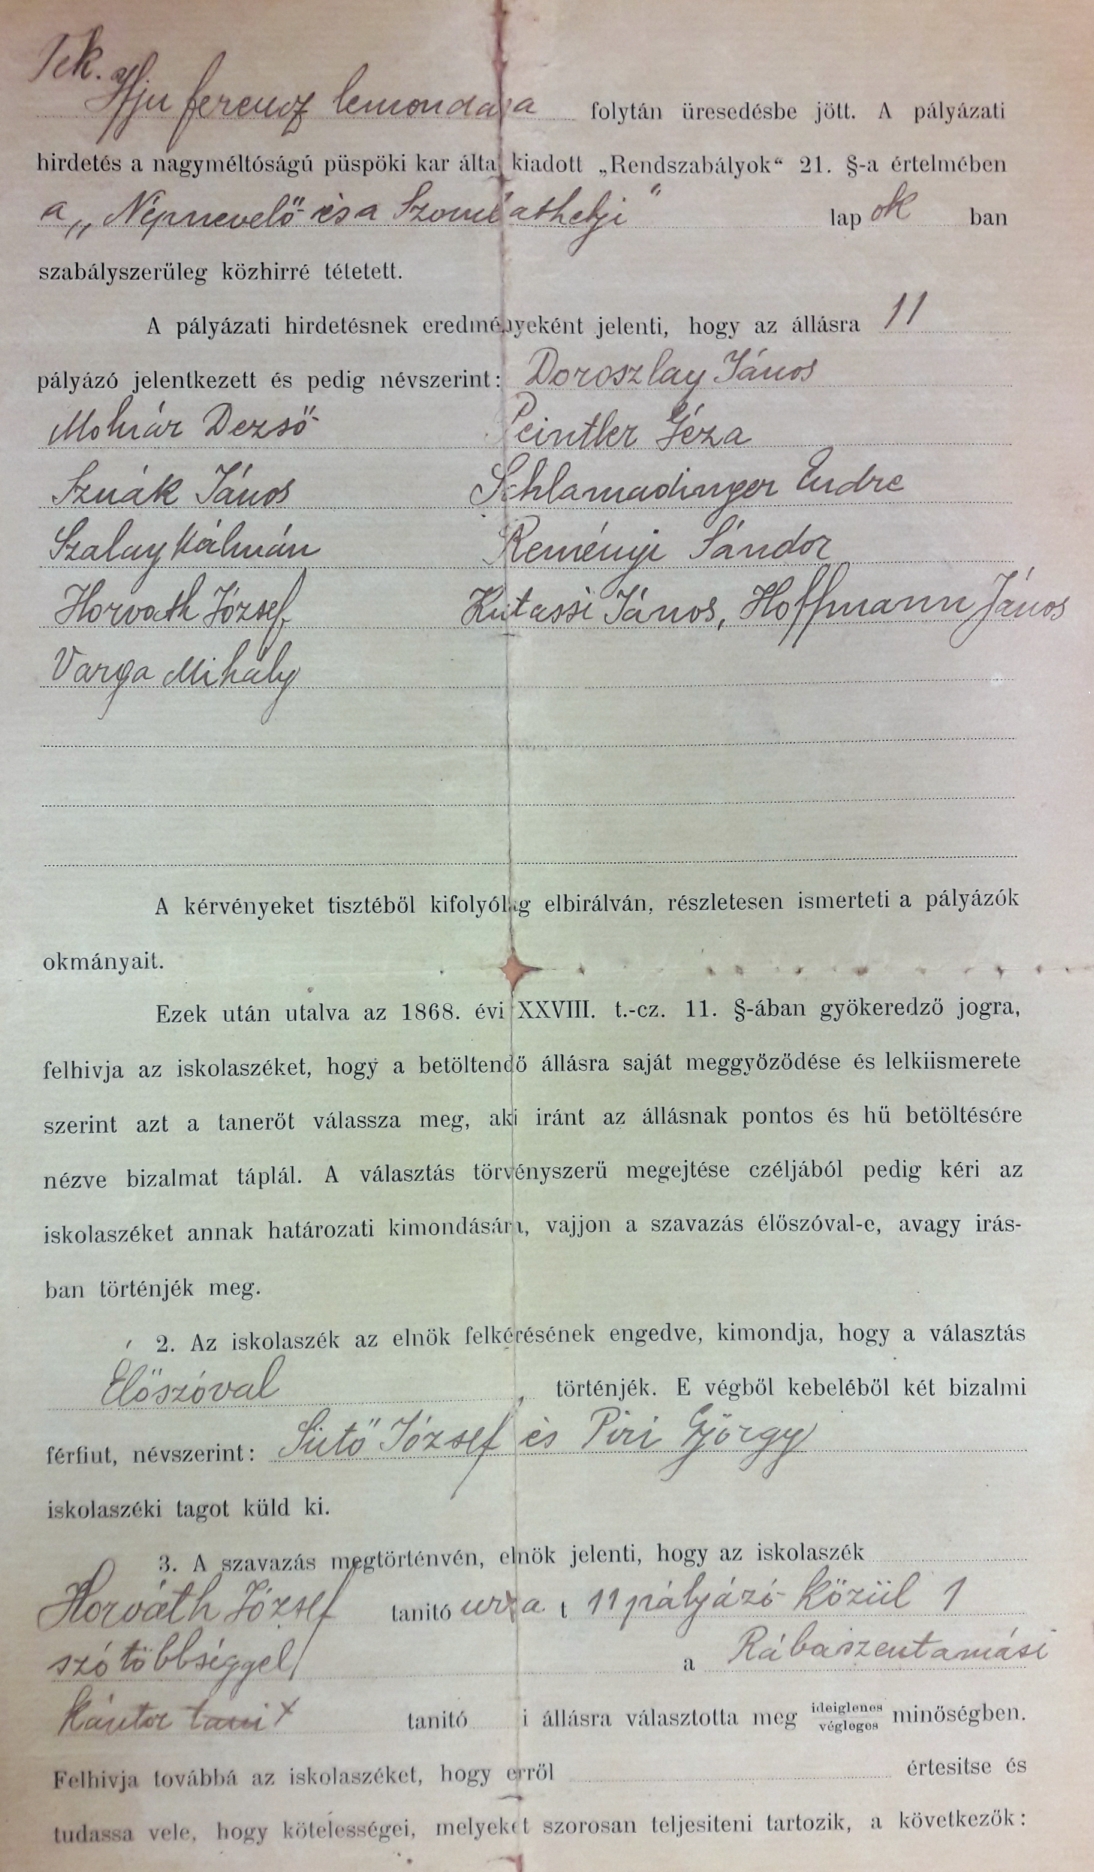 Tek.
Ifju ferencz lemondása folytán üresedésbe jött. A pályázati
hirdetés a nagyméltóságú püspöki kar által kiadott „Rendszabályok“ 21. §-a értelmében
a „Népnevelő és a Szombathelyi" lap ok ban
szabályszerüleg közhirré tétetett.
A pályázati hirdetésnek eredményeként jelenti, hogy az állásra 11
pályázó jelentkezett és pedig névszerint: Doroszlay János
Molnár Dezső Peintler Géza
Sznák János Schlamadinger Endre
Szalay Kálmán Reményi Sándor
Horvath József Kutassi János, Hoffmann János
Varga Mihály
A kérvényeket tisztéből kifolyólag elbirálván, részletesen ismerteti a pályázók
okmányait.
Ezek után utalva az 1868. évi XXVIII. t.-cz. 11. §-ában gyökeredző jogra,
felhivja az iskolaszéket, hogy a betöltendő állásra saját meggyőződése és lelkiismerete
szerint azt a tanerőt válassza meg, aki iránt az állásnak pontos és hü betöltésére
nézve bizalmat táplál. A választás törvényszerű megejtése czéljából pedig kéri az
iskolaszéket annak határozati kimondására, vajjon a szavazás élőszóval-e, avagy irás-
ban történjék meg.
2. Az iskolaszék az elnök felkérésének engedve, kimondja, hogy a választás
Előszóval, történjék. E végből kebeléből két bizalmi
férfiut, névszerint: Sütő József és Piri György
iskolaszéki tagot küld ki.
3. A szavazás megtörténvén, elnök jelenti, hogy az iskolaszék
Horváth József tanitó urra t 11 pályázó közül 1
szó többséggel a Rábaszentamási
Kántor tani tanitó i állásra választotta meg ideiglenes végleges minőségben.
Felhivja továbbá az iskolaszéket, hogy erről értesitse és
tudassa vele, hogy kötelességei, melyeket szorosan teljesiteni tartozik, a következők: